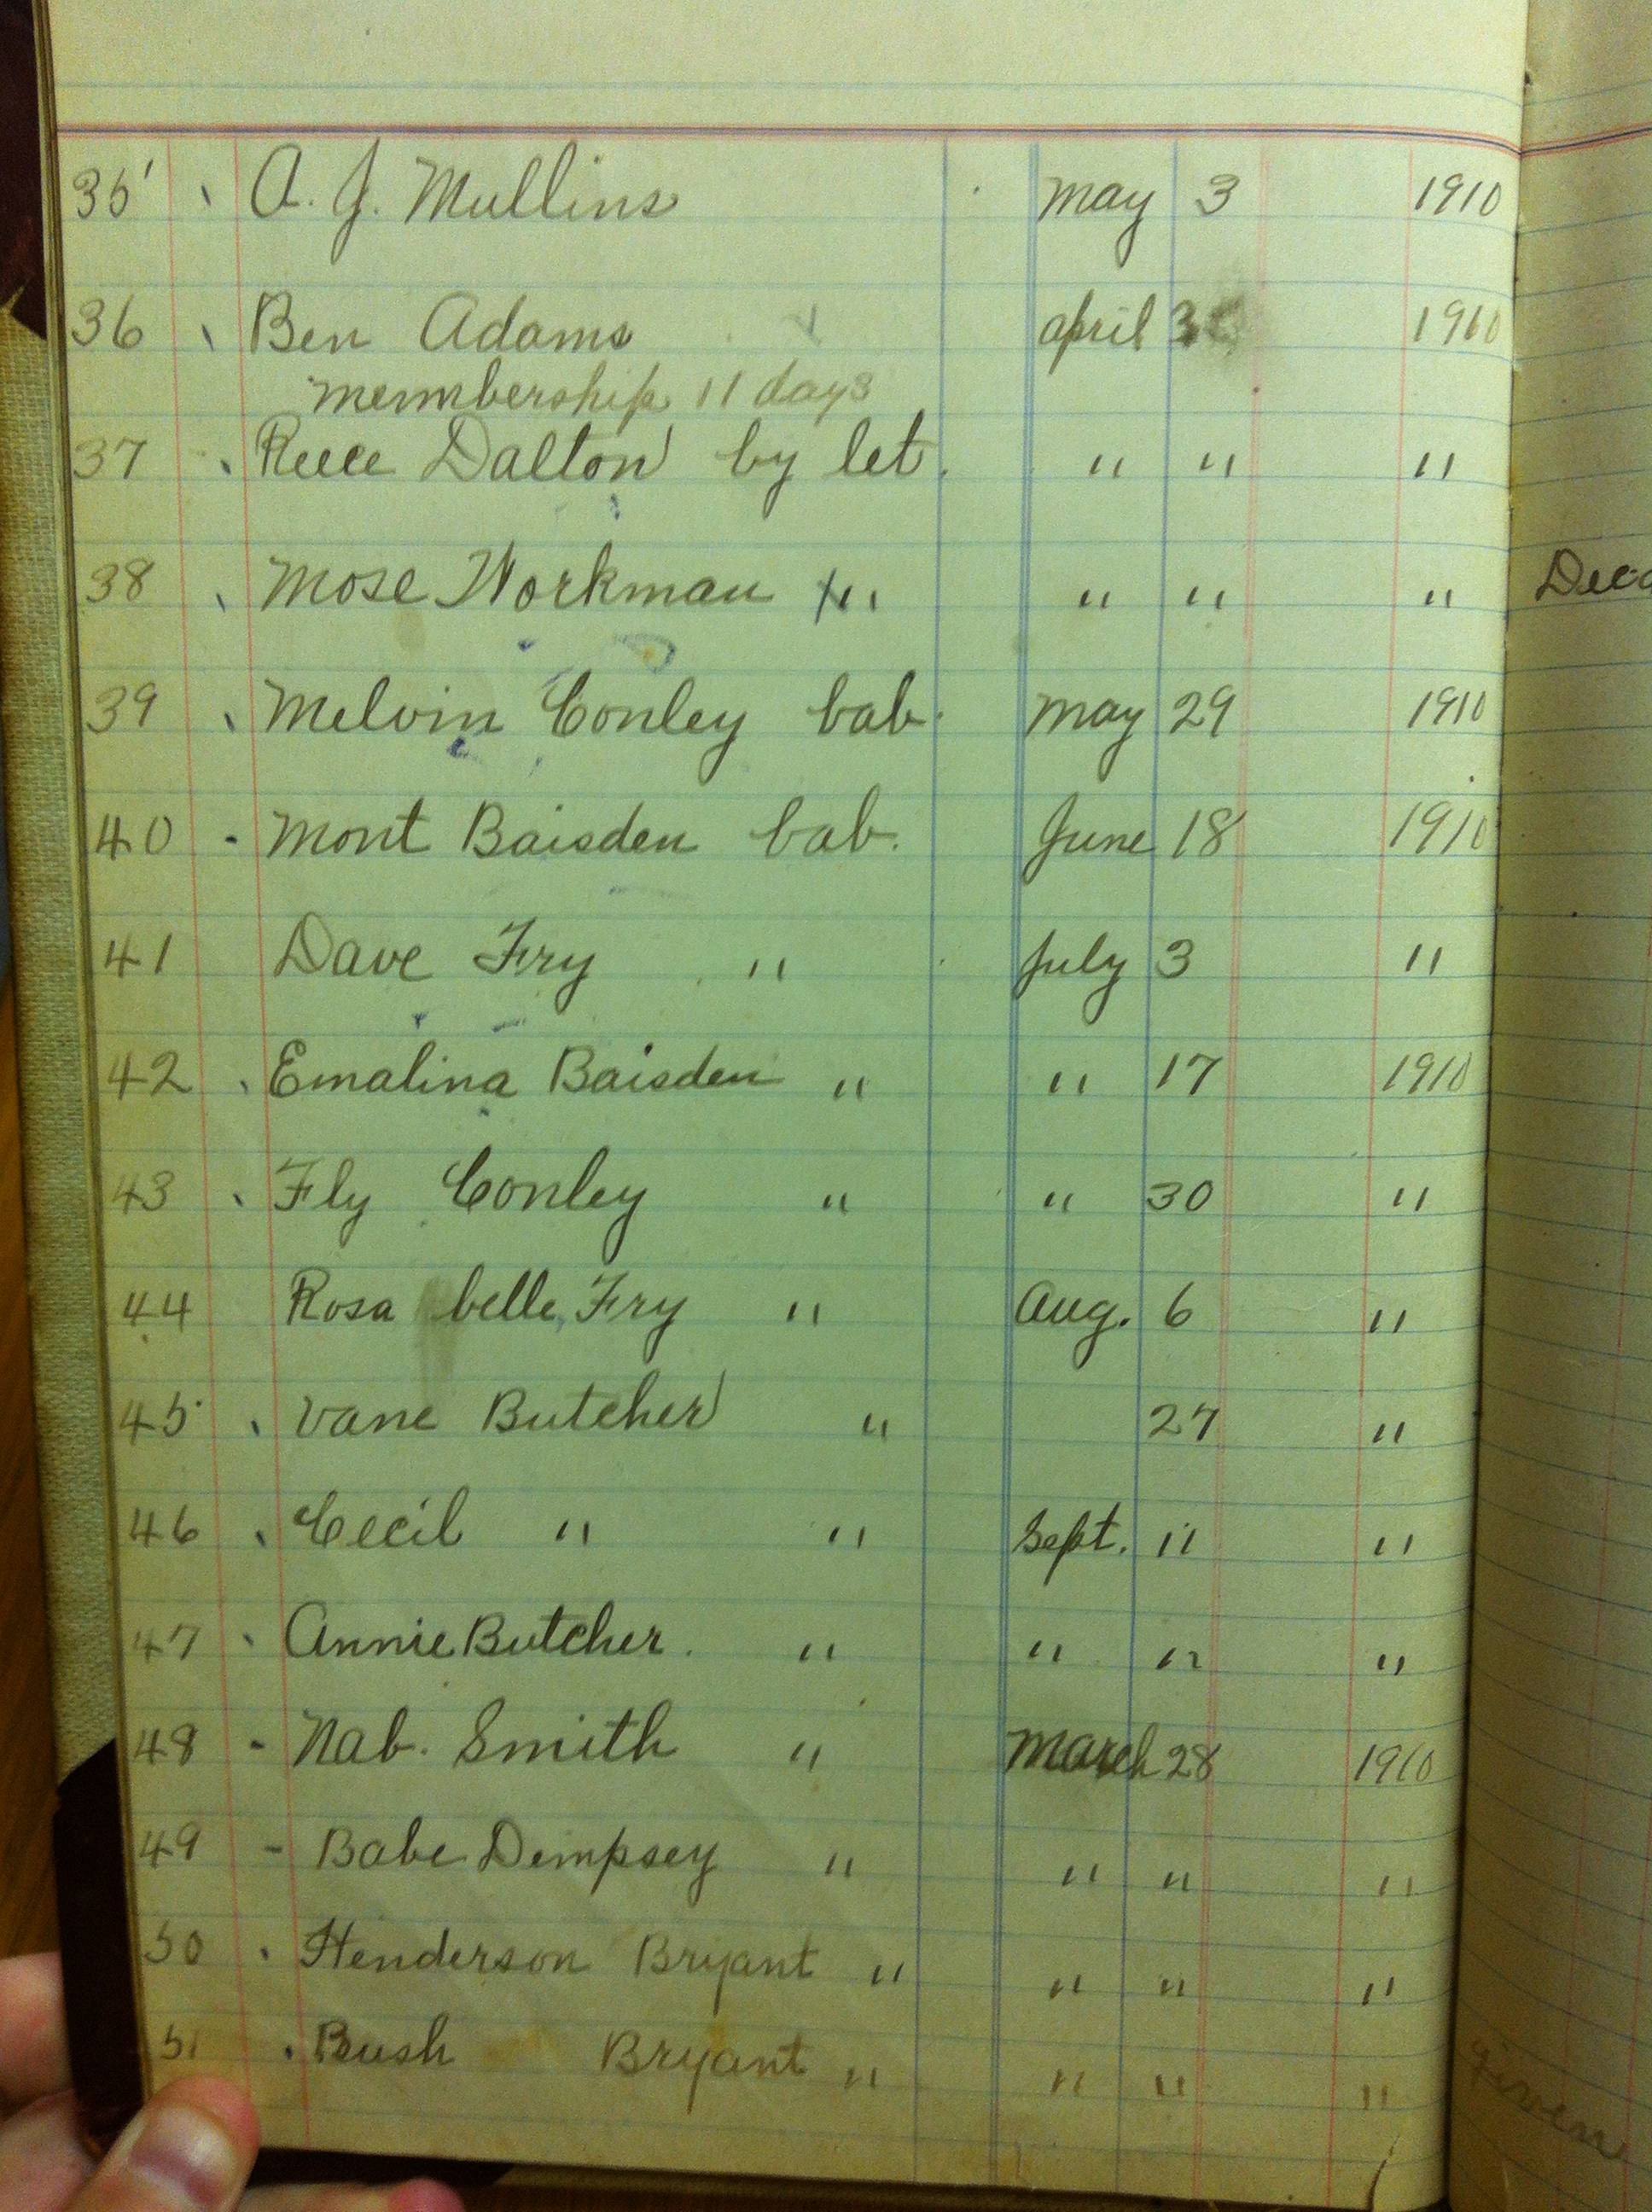 35 A. J. Mullins May 3 1910
36 Ben Adams April 1910
membership 11 days
37 Reece Dalton by let. " " "
38 Mose Workman " " " "
39 Melvin Conley bab. May 29 1910
40 Mont Baisden bab. June 18 1910
41 Dave Fry " July 3 "
42 Emalina Baisden " " 17 1910
43 Fly Conley " " 30 "
44 Rosa belle Fry " Aug. 6 "
45 Vane Butcher " 27 "
46 Cecil " " Sept. 11 "
47 Annie Butcher. " " " "
48 - Nab. Smith " March 28 1910
49 - Babe Dempsey " " " "
50 Henderson Bryant " " " "
51 Bush Bryant " " " "
given